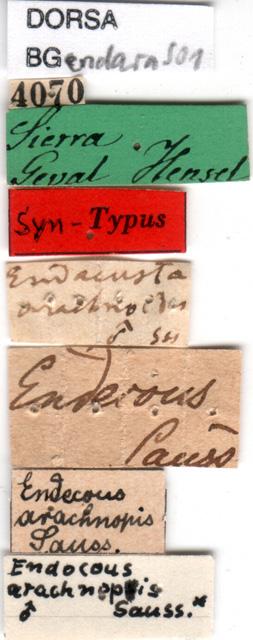 DORSA
BG endara S01
4070
Sierra
Geral Hensel
Syn-Typus
Endacusta
arachnoides
♂ Ss
Endecous
Sauss
Endecous
arachnopis
Sauss.
Endocous
arachnopsis
♂ Sauss.*